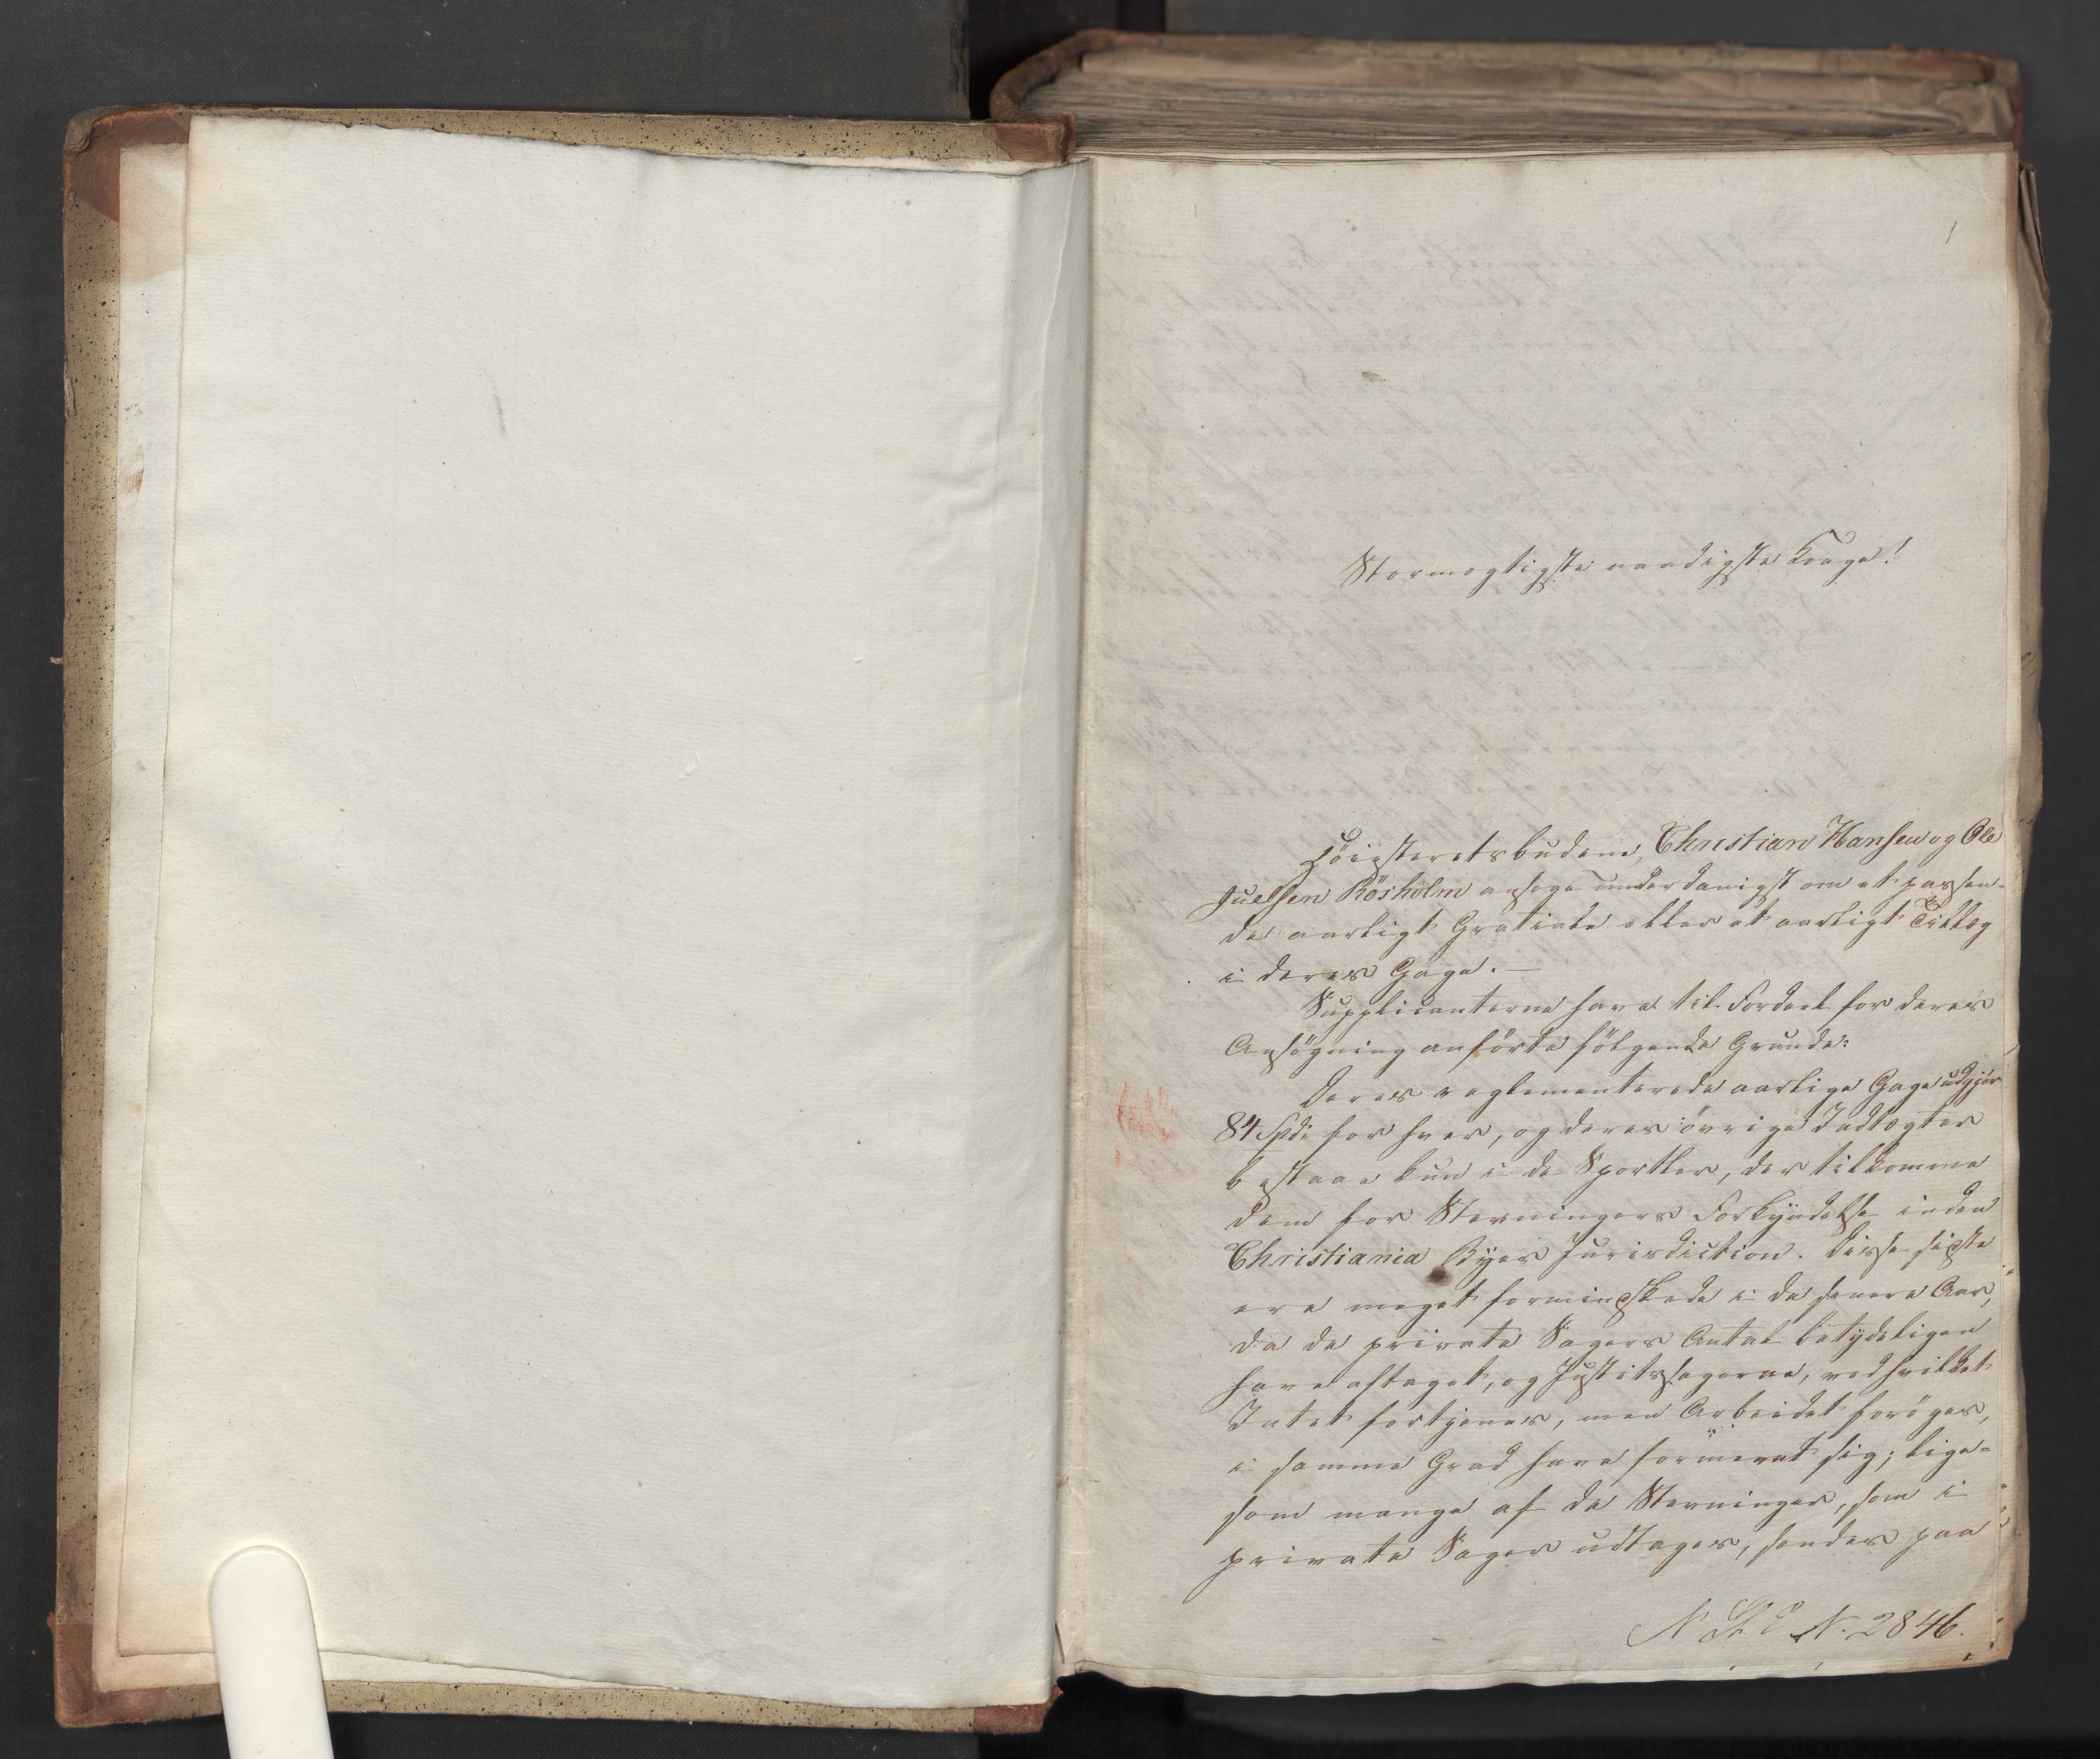 1
Stormægtigste naadigste Konge!
Höiesteretsbudene, Christian Hansen og Ole
Juelsen Rösholm ansøge underdanigst om et passen-
de aarligt Gratiale eller et aarligt Tillæg
i deres Gage. —
Supplicanterne have til Fordeel for deres
Ansögning anförte fölgende Grunde:
Deres reglementerede aarlige Gage udgjör
84 Spd. for hver, og deres övrige Indtægter
bestaae kun i de Sportler, der tilkomme
dem for Stevningers Forkyndelse inden
Christiania Byes Jurisdiction. Disse sidste
ere meget formindskede i de senere Aar,
da de private Sagers Antal betydeligen
have aftaget, og Justitssagerne, ved hvilket
Intet fortjenes, men Arbeidet foröges,
i samme Grad have formeret sig; lige-
som mange af de Stevninger, som i
private Sager udtages, sendes paa
N. St. E. N. 2846.